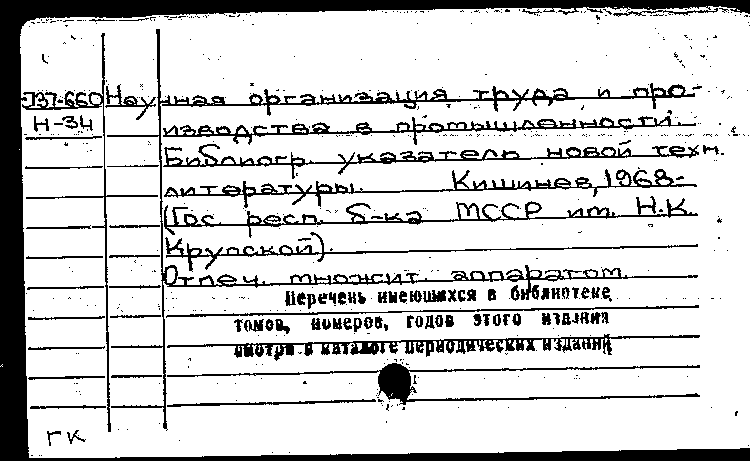 J37-660 Научная организация труда и про-
Н-34
изводства в промышленности.
Библиогр. указатель новой техн.
литературы. Кишинев, 1968-
(Гос. респ. б-ка МССР им. Н.К.
Крупской).
Отпеч. множит. аппаратом.
Перечень имеющихся в библиотеке
томов, номеров, годов этого издания
смотри в каталоге периодических изданий
ГК